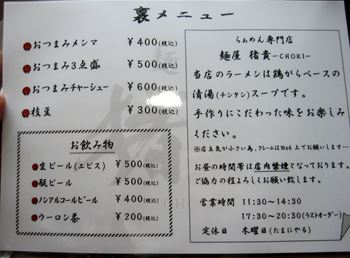 裏メニュー
おつまみメンマ ￥400(税込)
おつまみ3点盛 ￥500(税込)
おつまみチャーシュー ￥600(税込)
枝豆 ￥300(税込)
お飲み物
生ビール(エビス) ￥500(税込)
瓶ビール ￥500(税込)
ノンアルコールビール ￥400(税込)
ウーロン茶 ￥200(税込)
らぁめん専門店
麺屋 猪貴 -CHOKI-
当店のラーメンは鶏がらベースの
清湯(チンタン)スープです。
手作りにこだわった味をお楽しみ
ください。
※店主気が小さい為、クレームはWeb上でお願います…
お昼の時間帯は店内禁煙となっております。
ご協力の程よろしくお願い致します。
営業時間 11:30~14:30
17:30~20:30(ラストオーダー)
定休日 木曜日(たまにやる)